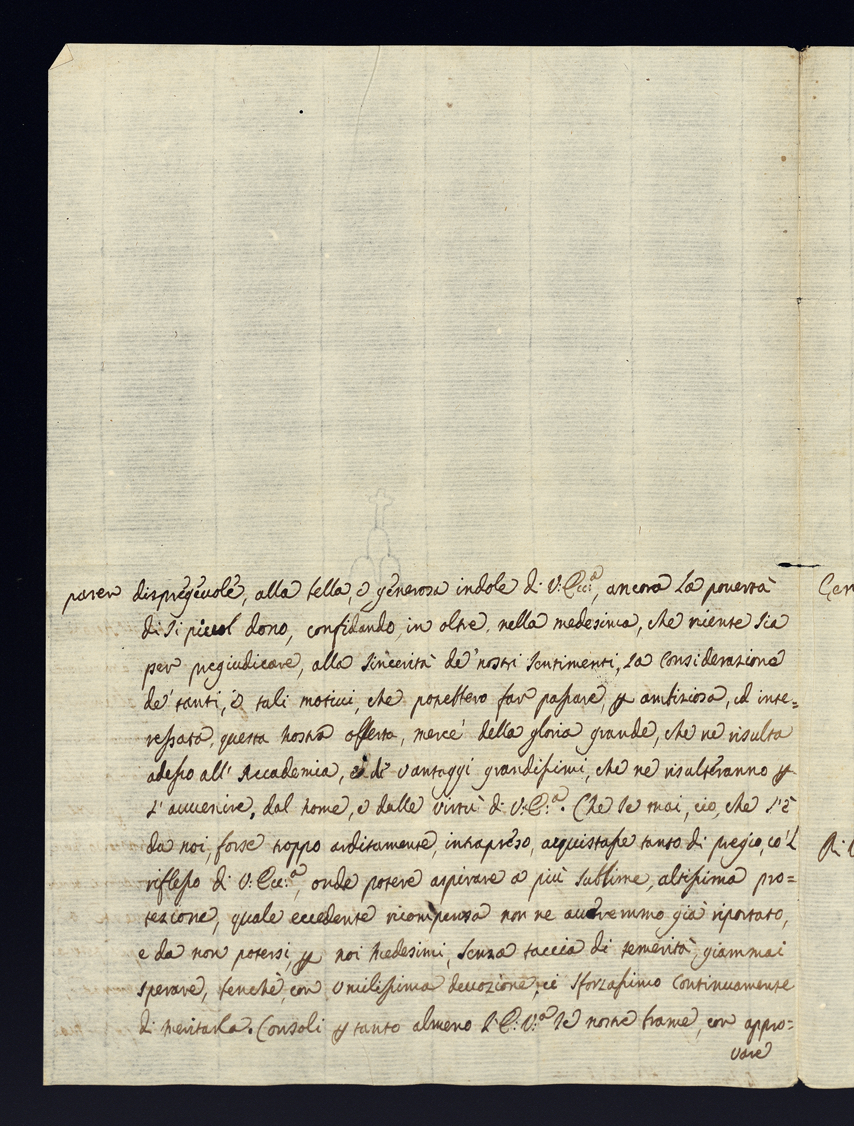 parer dispregevole, alla bella, e generosa indole di V: Ecc:ª, ancora la povertà
di si piccol dono, confidando, in oltre, nella medesima, che niente sia
per pregiudicare, alla sincerità de' nostri sentimenti, la considerazione
de' tanti, e tali motivi, che potrebbero far passare, p ambiziosa, ed inte=
ressata, questa nostra offerta, mercè della gloria grande, che ne risulta
adesso all' Accademia, e de' vantaggi grandissimi, che ne risulteranno p
l' avvenire, dal nome, e dalle virtù di V: E:ª. Che se mai, ciò, che s'è
da noi, forse troppo arditamente, intrapreso, acquistasse tanto di pregio, co'l
riflesso di V: Ecc:ª, onde potere aspirare a più sublime, altissima pro=
tezione, quale eccedente ricompensa non ne avremmo già riportato,
e da non potersi, p noi medesimi, senza taccia di temerità, giammai
sperare, benchè, con umilissima devozione, ci sforzassimo continuamente
di meritarla. Consoli p tanto almeno l' E: V:ª le nostre brame, con appro=
vare
Gen